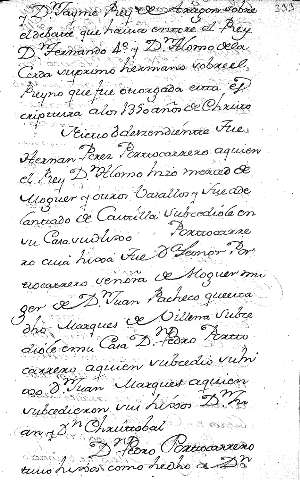 393
y D.n Jayme Rey de Aragon sobre
el debate que havia entre el Rey
D.n Fernando 4.º y D.n Alonso de la
Cerda su primo hermano sobre el
Reyno que fue otorgada esta es
criptura a los 1350 años de Christo
descendiente Fue
Hernan Perez Portocarrero a quien
el Rey D.n Alonso hizo merced de
Moguer y otros Vasallos y fue Ade
lantado de Castilla subcediole en
su Casa su hijo Portocarre
ro cuia hija Fue D.ª Leonor Por
tocarrero señora de Moguer mu
ger de D.n Juan Pacheco
Marques de Villena subce
diole en su Casa D.n Pedro Porto
carrero a quien subcedio su hi
jo D.n Juan Marques a quien
subcedieron sus hijos D.n Ju
an y D.n Christobal
D.n Pedro Portocarrero
tuvo hijos como hecho de D.n